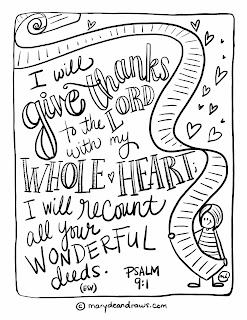 I will
give thanks
to the LORD
with my
WHOLE HEART.
I will recount
all your
WONDERFUL
deeds.
PSALM
9:1
© marydeandraws.com